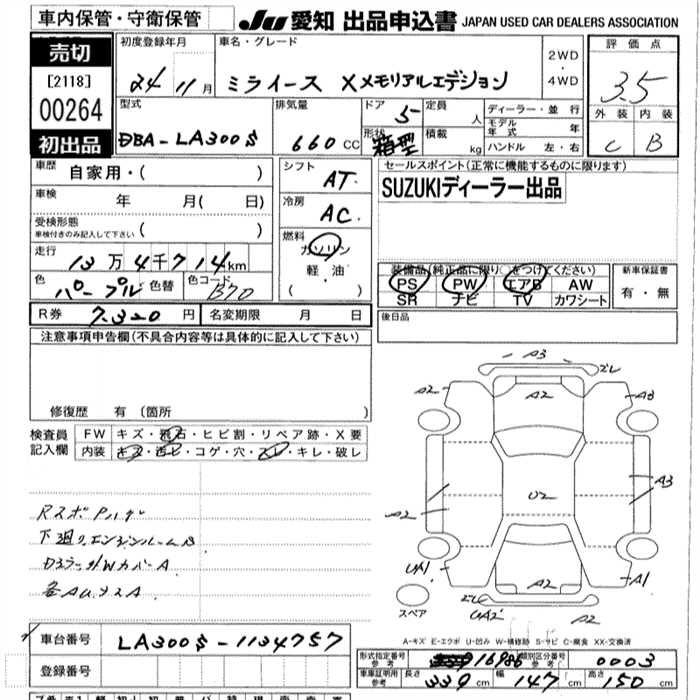 車内保管・守衛保管
JU 愛知 出品申込書 JAPAN USED CAR DEALERS ASSOCIATION
売切
[2118]
00264
初出品
初度登録年月
24 11 月
車名・グレード
ミライース Xメモリアルエディション
2WD
・
4WD
評価点
3.5
外装 内装
C B
型式
DBA-LA300S
排気量
660 CC
ドア 5
形状 箱型
定員 人
積載 kg
ディーラー・並行
モデル年式 年
ハンドル 左・右
車歴 自家用・( )
車検 年 月( 日)
受検形態
車検付きのみ記入して下さい ( )
走行
13万4千714km
色
パープル
色替
色コード
シフト
AT
冷房
AC
燃料
ガソリン
軽油
( )
セールスポイント(正常に機能するものに限ります)
SUZUKIディーラー出品
装備品(純正品に限り○をつけてください)
PS PW エアB AW
SR ナビ TV カワシート
新車保証書
有・無
R券 7,320 円
名変期限 月 日
後日品
注意事項申告欄(不具合内容等は具体的に記入して下さい)
修復歴 有(箇所 )
検査員記入欄
FW キズ・飛石・ヒビ割・リペア跡・X要
内装 キズ・汚ビ・コゲ・穴・スレ・キレ・破レ
下廻り、エンジンルームB
A3
A2 A2 A3
A3
U2
A2
UA1 A2 A1
スペア
UA2 A2
A-キズ E-エクボ U-凹み W-補修跡 S-サビ C-腐食 XX-交換済
車台番号 LA300S-1134757
登録番号
形式指定番号 参考 16986
類別区分番号 参考 0003
車車証明用 参考
長さ 339 cm
幅 147 cm
高さ 150 cm